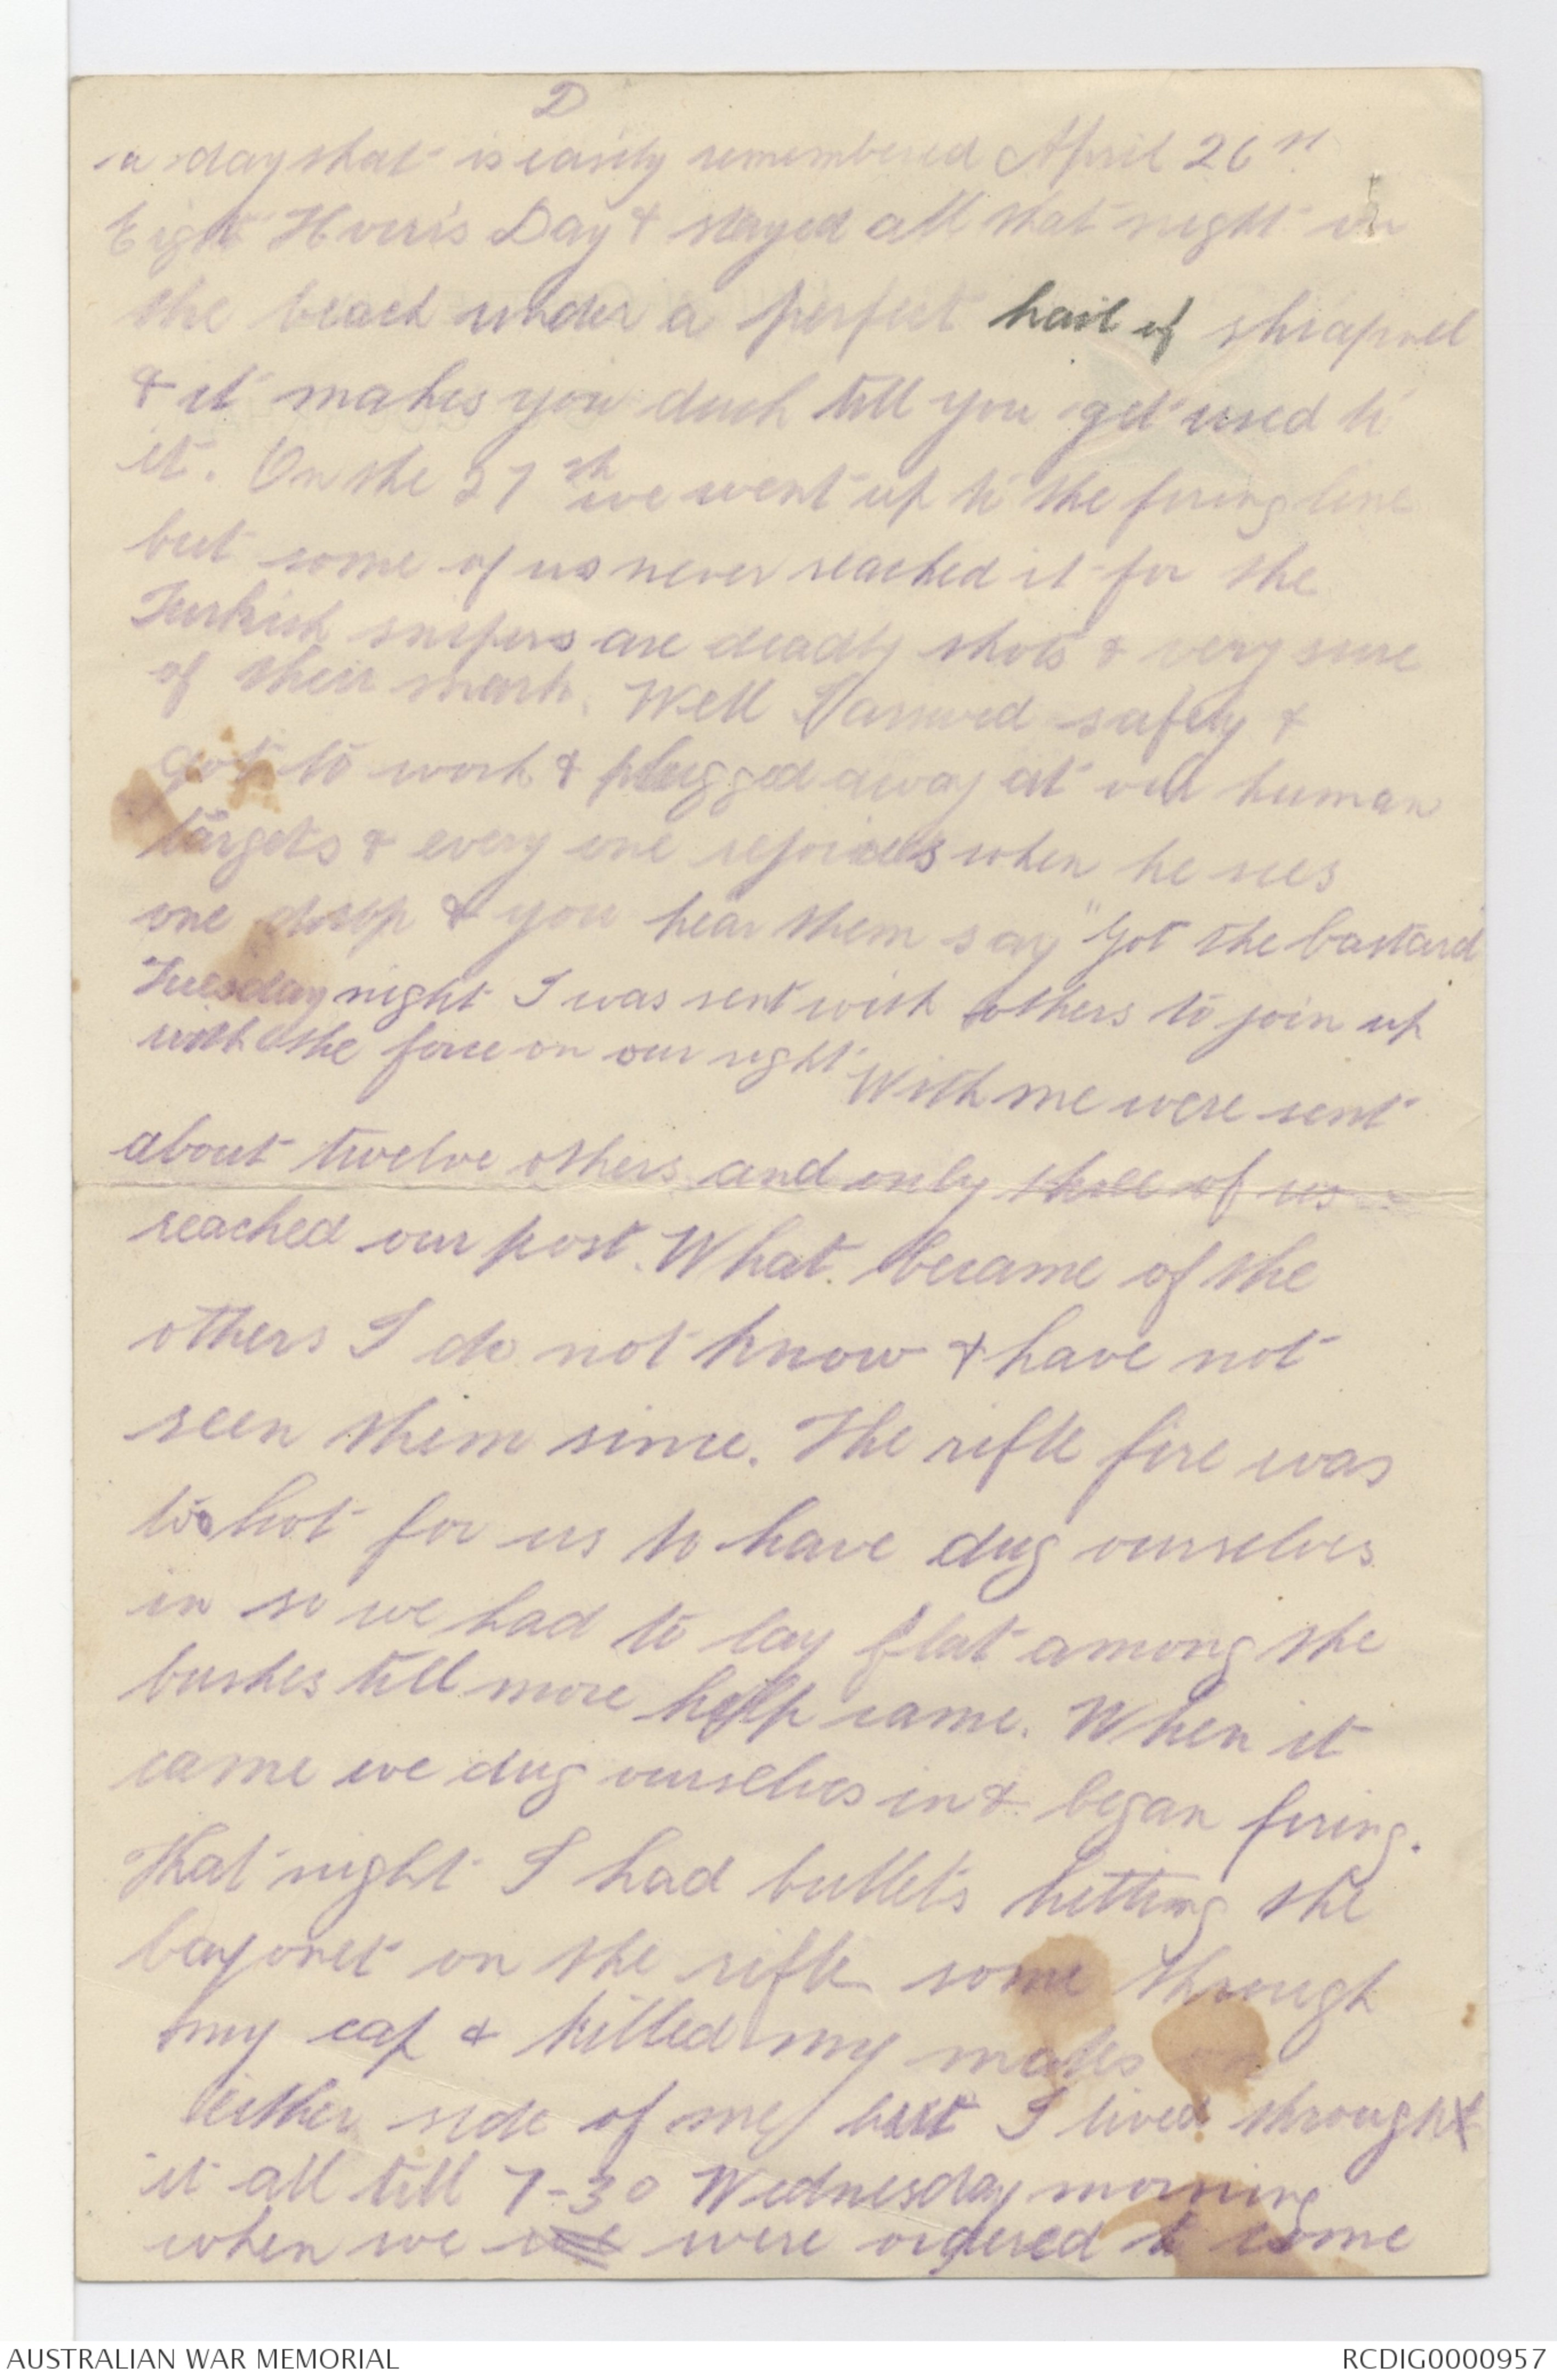 D
a day that is easily remembered April 26st.
Eight Hours Day & stayed all that night on
the beach under a perfect hail of shrapnel
& it makes you duck till you get used to
it. On the 27th we went up to the firing line
but some of us never reached it for the
Turkish snipers are deadly shots & very sure
of their mark. Well I arrived safely &
got to work & plugged away at our human
targets & every one rejoices when he sees
one drop & you hear them say "Got the bastard
Tuesday night I was sent with others to join up
with the force on our right With me were sent
about twelve others and only three of us
reached our post. What became of the
others I do not know & have not
seen them since. The rifle fire was
too hot for us to have dug ourselves
in so we had to lay flat among the
bushes till more help came. When it
came we dug ourselves in & began firing.
That night I had bullets hitting the
bayonet on the rifle some through
my cap & killed my mates on
either side of me but I lived through
it all till 7-30 Wednesday morning
when we were ordered to come
AUSTRALIAN WAR MEMORIAL
RCDIG0000957